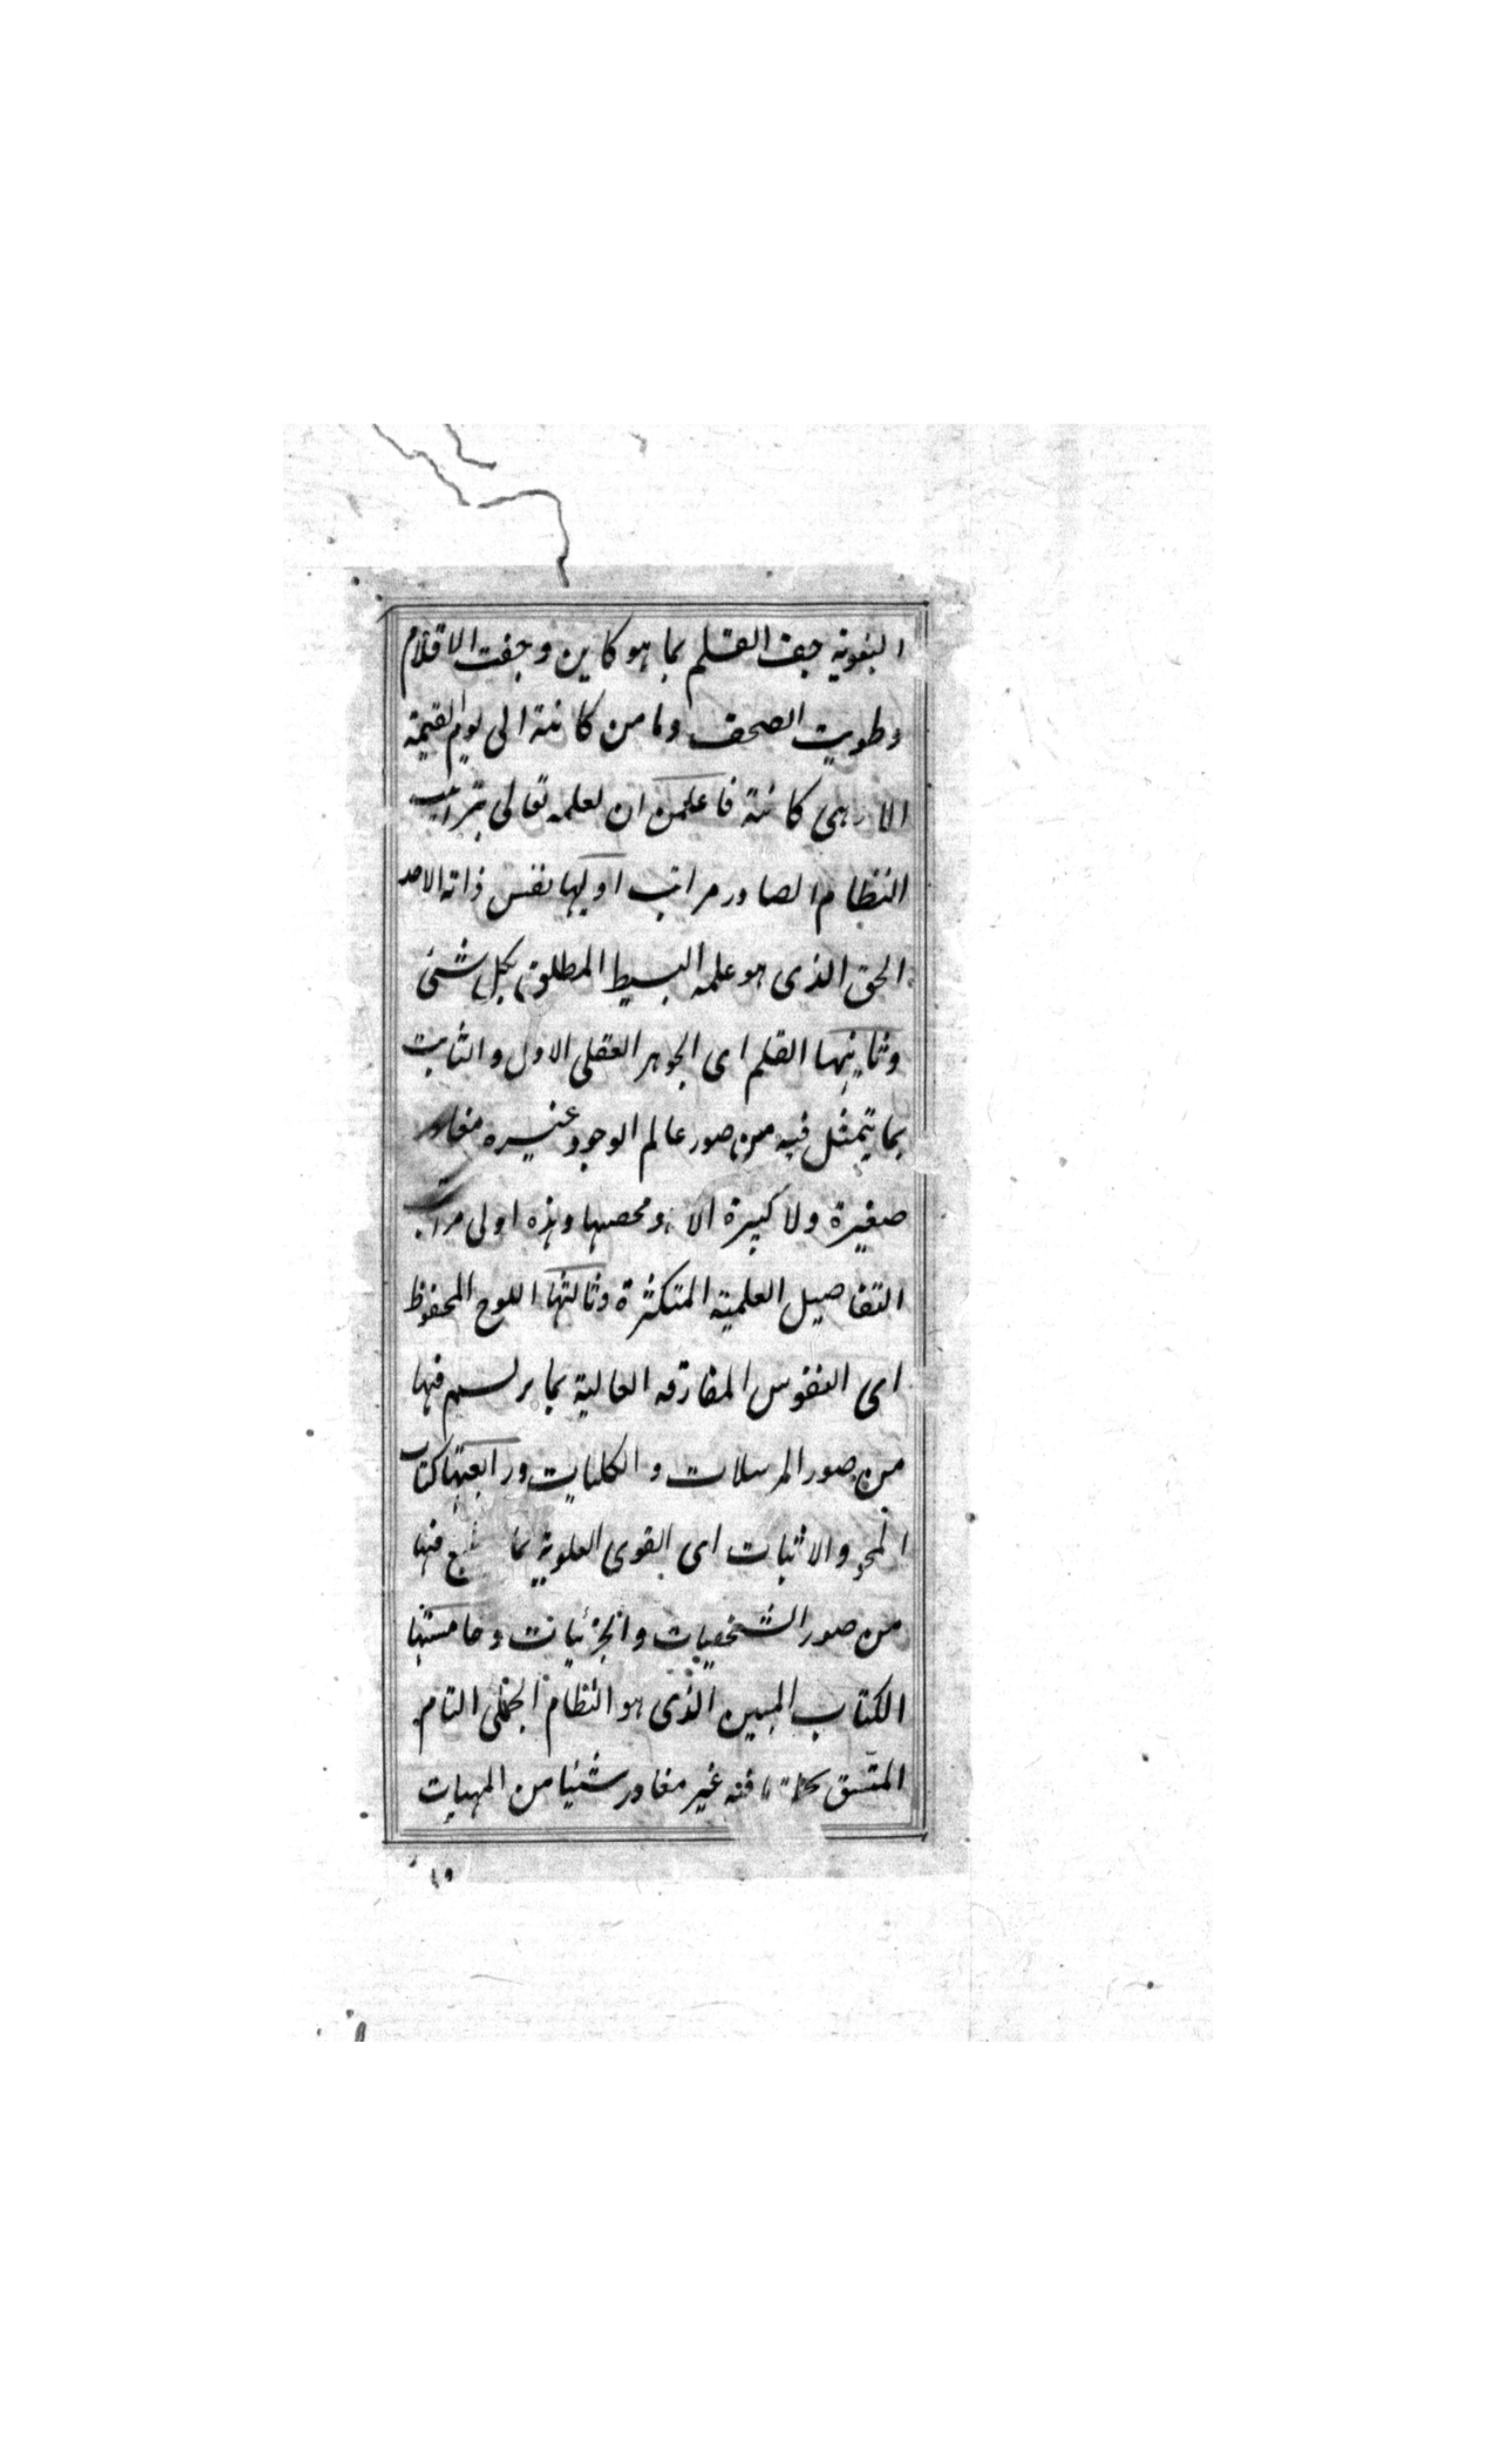 النبوية جف القلم بما هو كاين وجفت الاقلام
وطويت الصحف وما من كائنة الى يوم القيمة
الا وهى كائنة فاعلمن ان لعلمه تعالى بترتيب
النظام الصادر مراتب اوليها نفس ذاته الاحد
الحق الذى هو علمه البسيط المطلق بكل شئ
وثانيتها القلم اى الجوهر العقلى الاول والثابت
بما يتمثل فيه من صور عالم الوجود غيره مغادر
صغيرة ولا كبيرة الا هو محصيها وهذه اولى مراتب
التفاصيل العلمية المتكثرة وثالثتها اللوح المحفوظ
اى النفوس المفارقه العالية بما يرتسم فيها
من صور المرسلات والكليات ورابعتها كتاب
المحو والاثبات اى القوى العلوية بما فيها
من صور الشخصيات والجزئيات وخامستها
الكتاب المبين الذى هو النظام الجملى التام
المتسق غير مغادر شئيا من المهيات